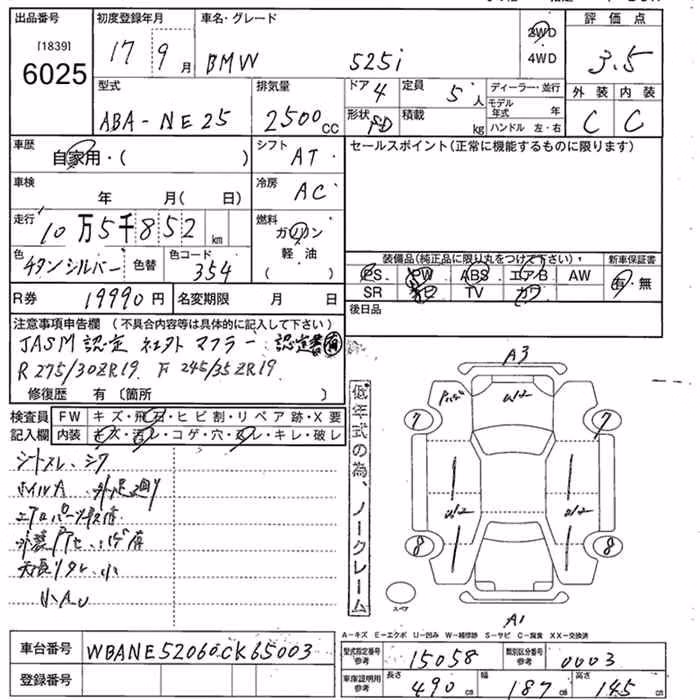 出品番号 初度登録年月 車名・グレード 2WD 4WD 評価点
[1839]
6025
17 9月 BMW 525i 3.5
型式 排気量 ドア 4 定員 5人 ディーラー・並行 外装 内装
モデル年式 年
ABA-NE25 2500cc 形状 積載 kg ハンドル 左・右 C C
車歴 自家用・( ) シフト AT セールスポイント(正常に機能するものに限ります)
車検 年 月( 日) 冷房 AC
走行 10万5千852km 燃料 ガソリン
軽油
( )
色 チタンシルバー 色替 色コード 354
装備品(純正品に限り丸をつけて下さい) 新車保証書
PS PW ABS エアB AW 有・無
SR TV カワ
R券 19990円 名変期限 月 日 後日品
注意事項申告欄 (不具合内容等は具体的に記入して下さい)
JASM 認定 マフラー 認定書有
R 275/30ZR19 F 245/35ZR19
修復歴 有(箇所 )
検査員 FW キズ・飛石・ヒビ割・リペア跡・X要
記入欄 内装 キズ・汚レ・コゲ・穴・スレ・キレ・破レ
シートスレ、シワ
ホイルA
小AU
低年式の為、ノークレーム
A3
W2
7 7
W2 W2
8 8
スペア
A1
A-キズ E-エクボ U-凹み W-補修跡 S-サビ C-腐食 XX-交換済
車台番号 WBANE52060CK65003
登録番号
型式指定番号 参考 15058 類別区分番号 参考 0003
車庫証明用 参考 長さ 490cm 幅 187cm 高さ 145cm